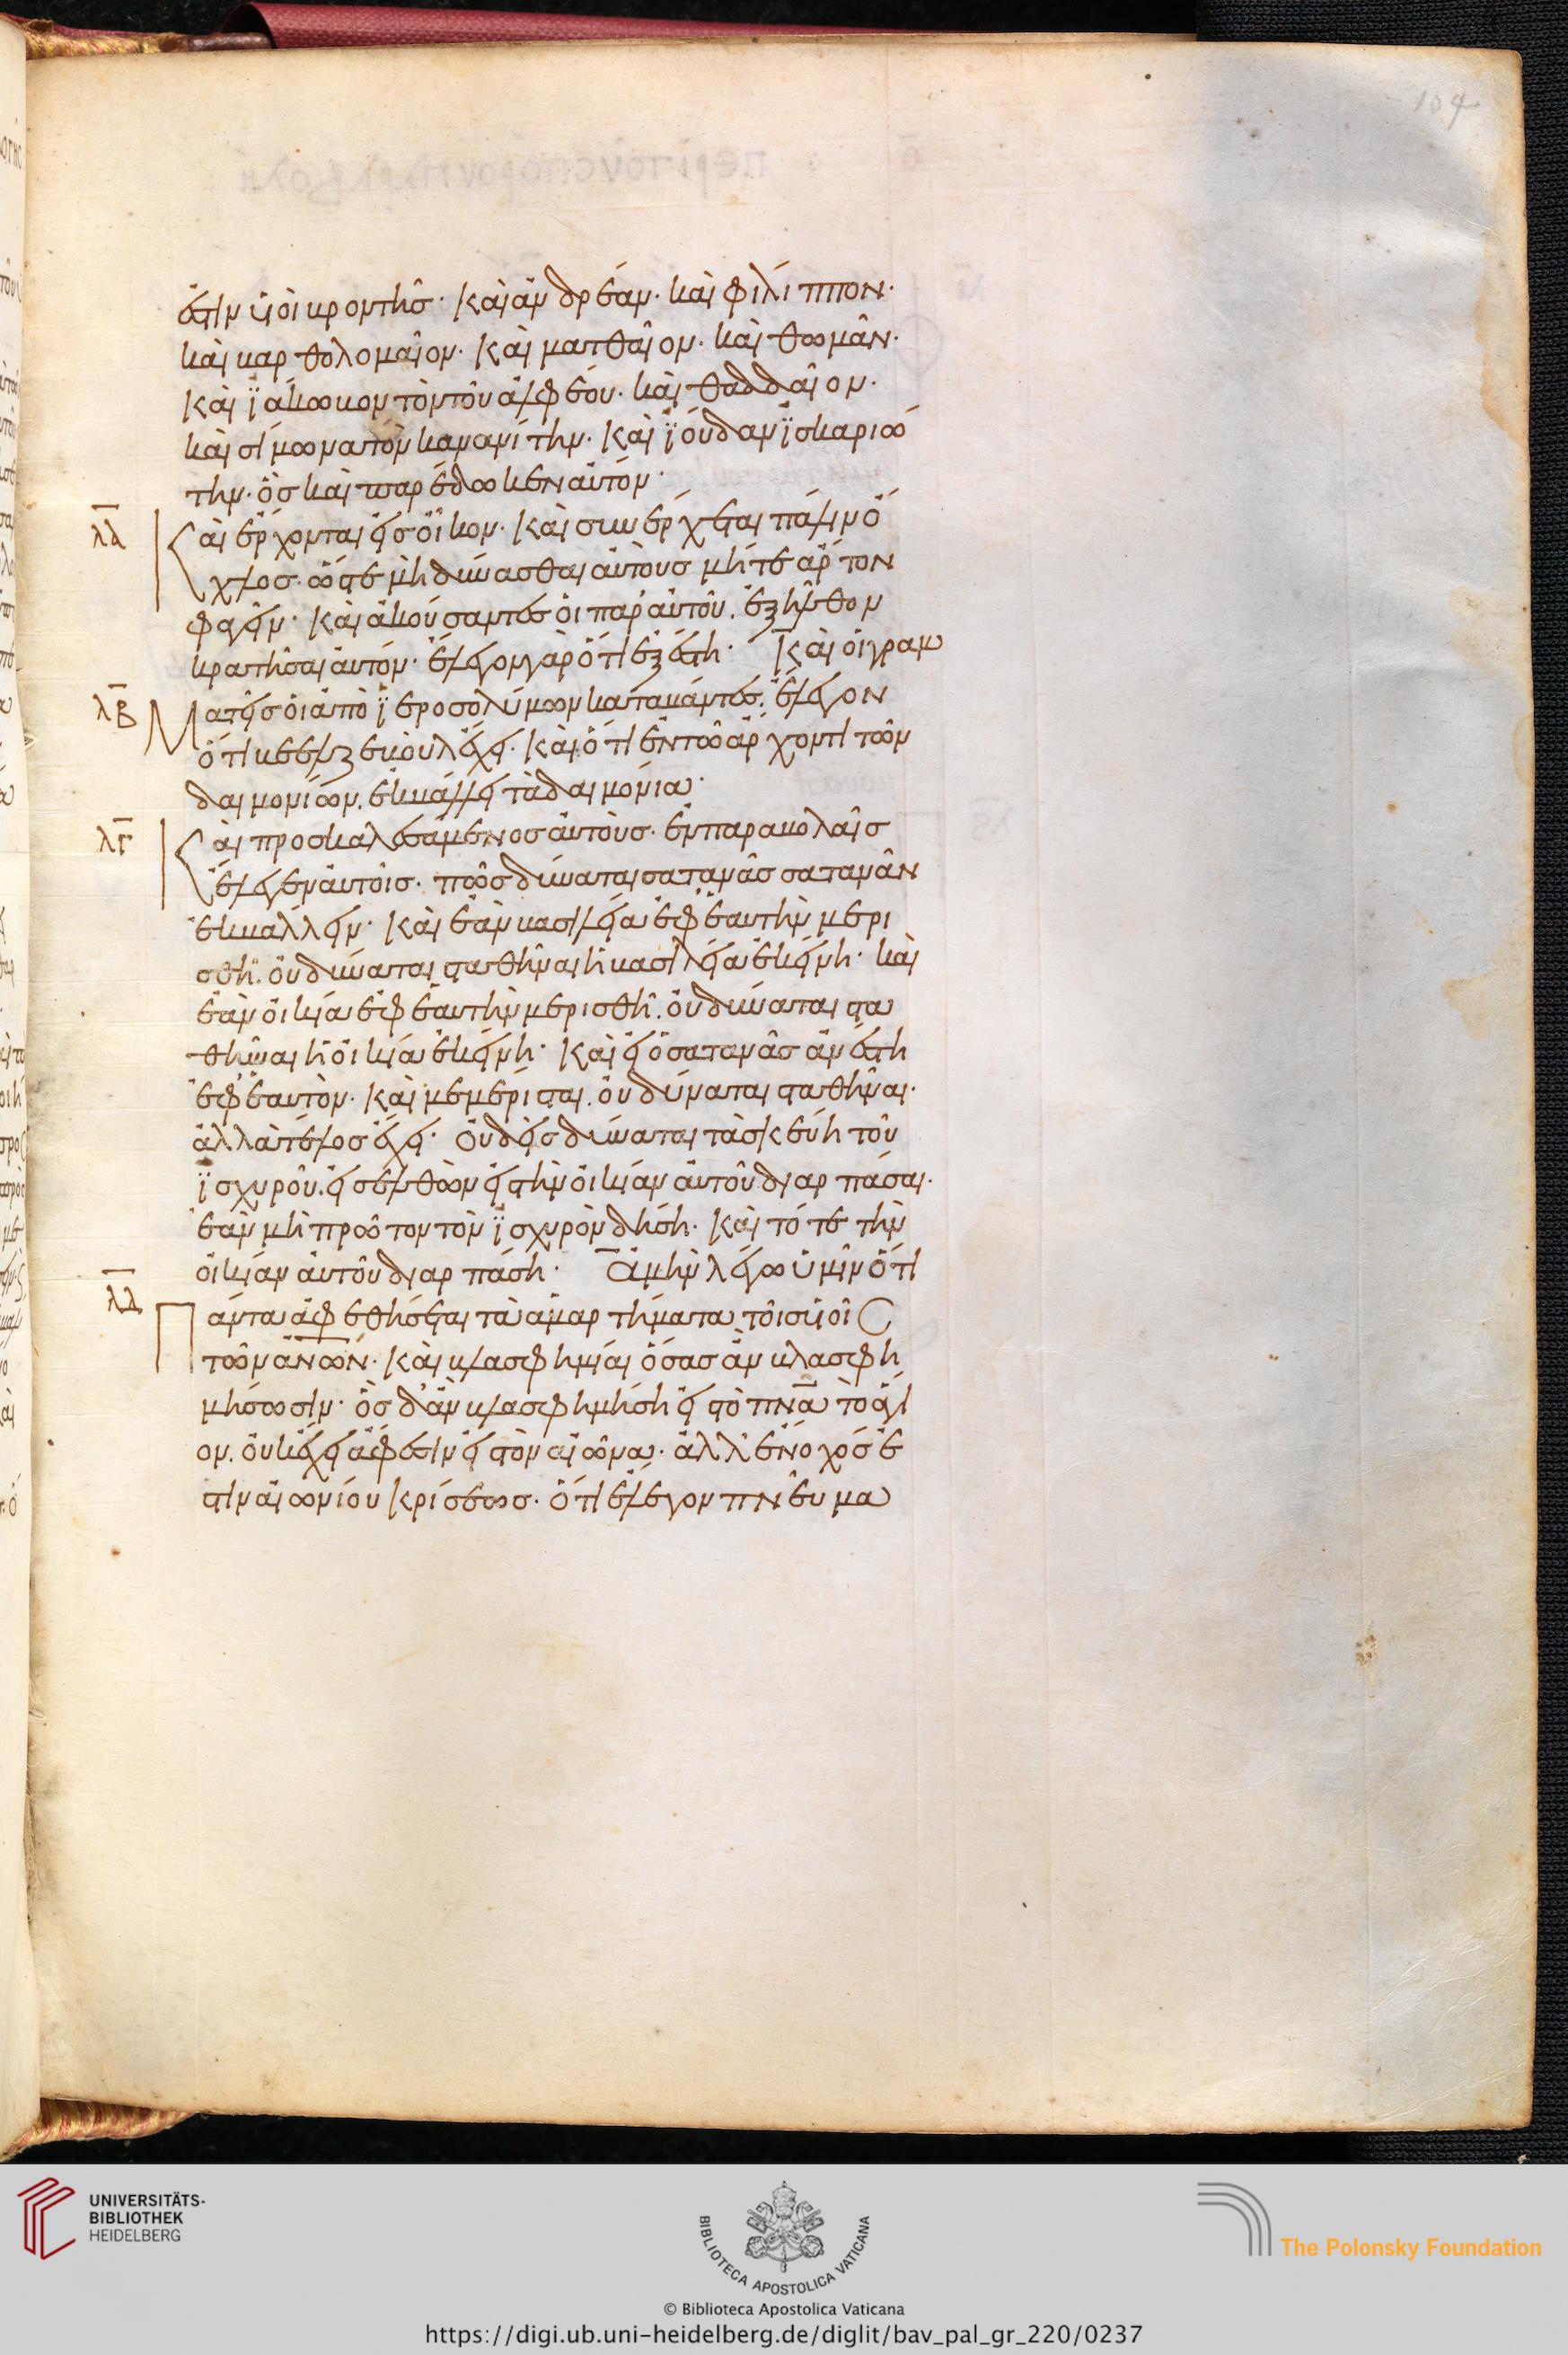 104
ἐστὶν υἱοὶ βροντῆς· Καὶ ἀνδρέαν· καὶ φίλιππον·
καὶ βαρθολομαῖον· Καὶ ματθαῖον· καὶ θωμᾶν·
Καὶ ϊάκωβον τὸν τοῦ ἀλφέου· καὶ θαδδαῖον·
καὶ σίμωνα τὸν κανανίτην· Καὶ ϊούδαν ϊσκαριώ
την· ὃς καὶ παρέδωκεν αὐτόν·
λα Καὶ ἔρχονται εἰς οἶκον· Καὶ συνέρχεται πάλιν ὄ
χλος· ὥστε μὴ δύνασθαι αὐτοὺς μήτε ἄρτον
φαγεῖν· Καὶ ἀκούσαντες οἱ παρ' αὐτοῦ, ἐξῆλθον
κρατῆσαι αὐτόν· ἔλεγον γὰρ ὅτι ἐξέστη· Καὶ οἱ γραμ
λβ Ματεῖς οἱ ἀπὸ ϊεροσολύμων καταβάντες, ἔλεγον
ὅτι βεελζεβοὺλ ἔχει· Καὶ ὅτι ἐν τῶ ἄρχοντι τῶν
δαιμονίων, ἐκβάλλει τὰ δαιμόνια·
λγ Καὶ προσκαλεσάμενος αὐτοὺς· ἐν παραβολαῖς
ἔλεγεν αὐτοῖς· πῶς δύναται σατανᾶς σατανᾶν
ἐκβάλλειν· Καὶ ἐὰν βασιλεία ἐφ ἑαυτὴν μερι
σθῆ, οὐ δύναται σταθῆναι ἡ βασιλεία ἐκείνη· καὶ
ἐὰν οἰκία ἐφ ἑαυτὴν μερισθῆ, οὐ δύναται στα
θῆναι ἡ οἰκία ἐκείνη· Καὶ εἰ ὁ σατανᾶς ἀνέστη
ἐφ' ἑαυτὸν· Καὶ μεμέρισται, οὐ δύναται σταθῆναι·
ἀλλὰ τέλος ἔχει· Οὐδεὶς δύναται τὰ σκεύη τοῦ
ϊσχυροῦ, εἰσελθὼν εἰς τὴν οἰκίαν αὐτοῦ διαρπάσαι·
ἐὰν μὴ πρῶτον τὸν ϊσχυρὸν δήση· Καὶ τότε τὴν
οἰκίαν αὐτοῦ διαρπάση· Ἀμὴν λέγω ὑμῖν ὅτι
λδ Πάντα ἀφεθήσεται τὰ ἁμαρτήματα τοῖς υἱοῖς
τῶν ἀνων· Καὶ βλασφημίαι ὅσας ἂν βλασφη
μήσωσιν· ὃς δ' ἂν βλασφημήση εἰς τὸ πνα τὸ ἅγι
ον, οὐκ ἔχει ἄφεσιν εἰς τὸν αἰῶνα· ἀλλ' ἔνοχός ἐ
στιν αἰωνίου κρίσεως· ὅτι ἔλεγον πνεῦμα
UNIVERSITÄTS-
BIBLIOTHEK
HEIDELBERG
BIBLIOTECA APOSTOLICA VATICANA
The Polonsky Foundation
© Biblioteca Apostolica Vaticana
https://digi.ub.uni-heidelberg.de/diglit/bav_pal_gr_220/0237